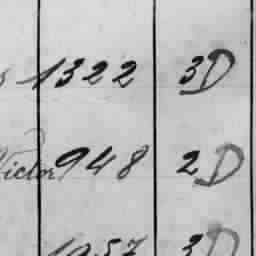 1322 3D
Victor 948 2D
1957 3D